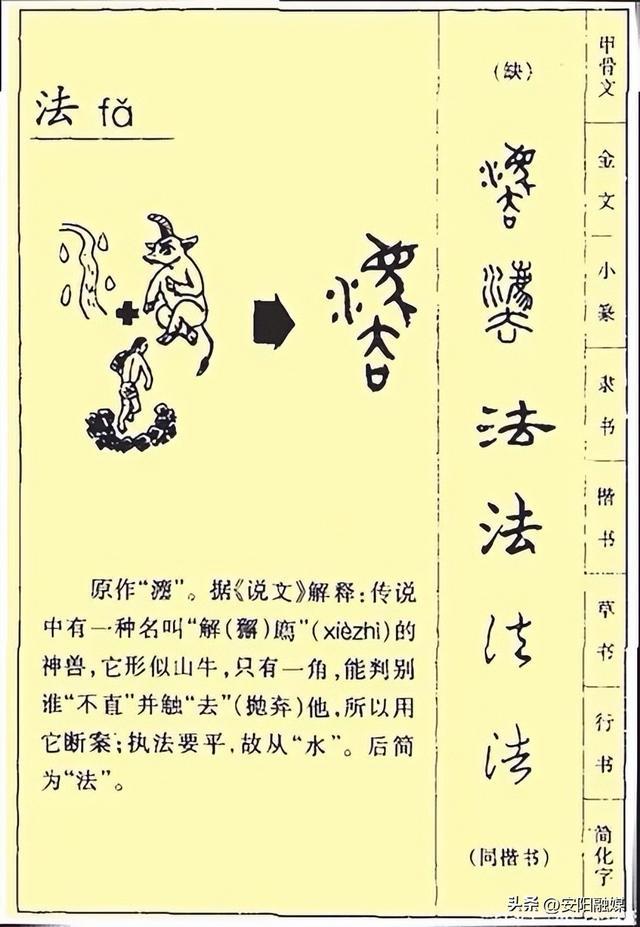 法 fǎ
原作“灋”。据《说文》解释：传说
中有一种名叫“解（獬）廌”(xièzhi)的
神兽，它形似山牛，只有一角，能判别
谁“不直”并触“去”(抛弃)他，所以用
它断案；执法要平，故从“水”。后简
为“法”。
(缺)
法
法
法
法
(同楷书)
甲骨文
金文
小篆
隶书
楷书
草书
行书
简化字
头条 @安阳融媒